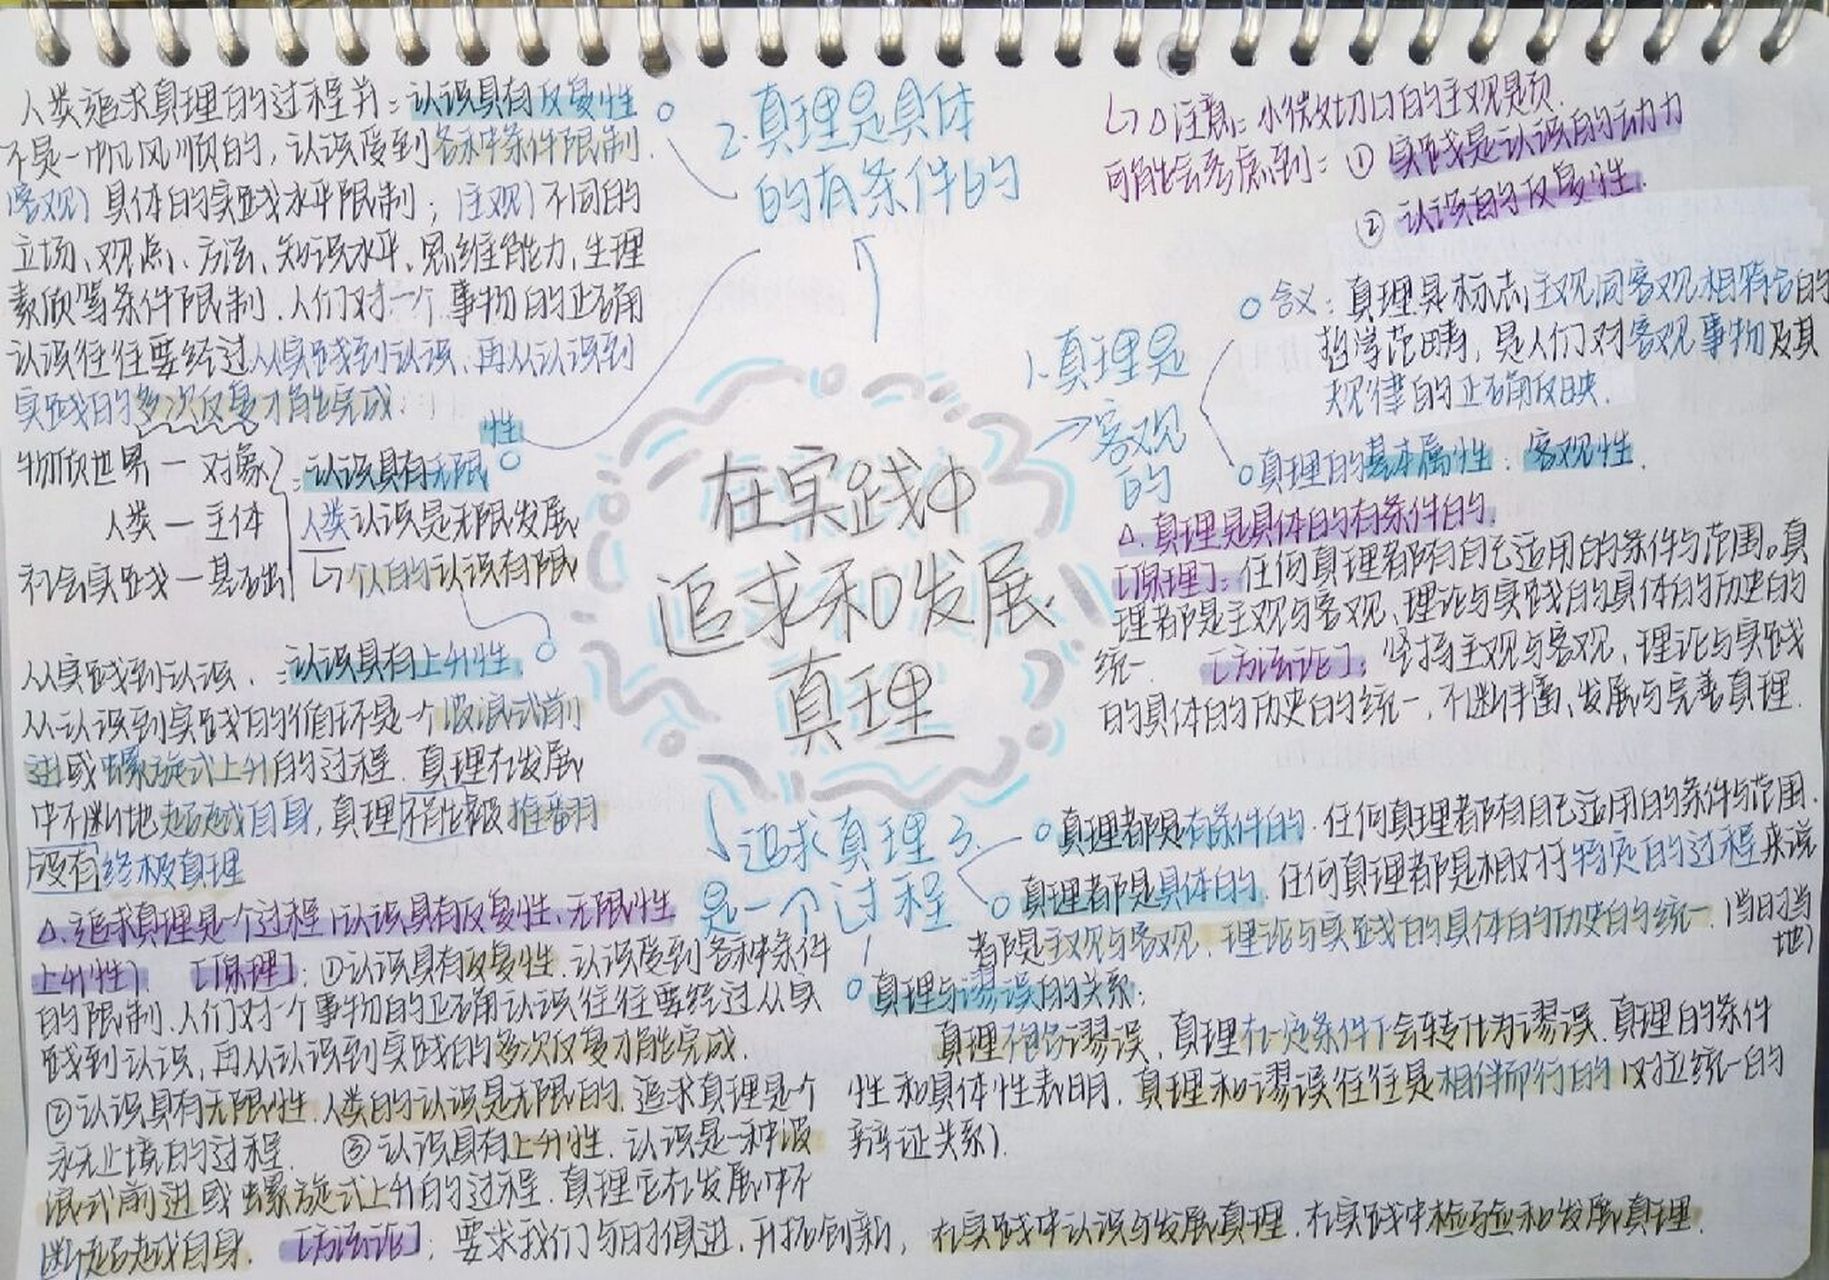 人类追求真理的过程并：认识具有反复性
不是一帆风顺的，认识受到各种条件限制.
客观）具体的实践水平限制；（主观）不同的
立场、观点、方法、知识水平、思维能力、生理
素质等条件限制.人们对一个事物的正确
认识往往要经过从实践到认识、再从认识到
实践的多次反复才能完成.
物质世界—对象
人类—主体
社会实践—基础
：认识具有无限
性
人类认识是无限发展
↳个人的认识有限
从实践到认识、：认识具有上升性
从认识到实践的循环是一个波浪式前
进或螺旋式上升的过程.真理在发展
中不断地超越自身，真理不能被推翻
没有终极真理
△.追求真理是一个过程（认识具有反复性、无限性
上升性）【原理】：①认识具有反复性.认识受到各种条件
的限制.人们对一个事物的正确认识往往要经过从实
践到认识，再从认识到实践的多次反复才能完成.
②认识具有无限性.人类的认识是无限的.追求真理是个
永无止境的过程. ③认识具有上升性.认识是一种波
浪式前进或螺旋式上升的过程.真理它在发展中不
断超越自身.【方法论】：要求我们与时俱进、开拓创新，在实践中认识与发展真理.在实践中检验和发展真理.
2.真理是具体
的有条件的
在实践中
追求和发展
真理
追求真理3.
是一个过程
↳△注意：小微切口的主观题页.
可能会考虑到：① 实践是认识的动力
② 认识的反复性.
1.真理是
→客观
的
含义：真理是标志主观同客观相符合的
哲学范畴，是人们对客观事物及其
规律的正确反映.
真理的基本属性：客观性.
△.真理是具体的有条件的.
【原理】：任何真理都有自己适用的条件与范围。真
理都是主观与客观、理论与实践的具体的历史的
统一. 【方法论】：坚持主观与客观、理论与实践
的具体的历史的统一，不断丰富、发展与完善真理.
真理都是有条件的.任何真理都有自己适用的条件与范围.
真理都是具体的.任何真理都是相对于特定的过程来说
都是主观与客观、理论与实践的具体的历史的统一.（当时当
地）
真理与谬误的关系：
真理不包谬误，真理在一定条件下会转化为谬误.真理的条件
性和具体性表明，真理和谬误往往是相伴而行的（对立统一的
辩证关系）.